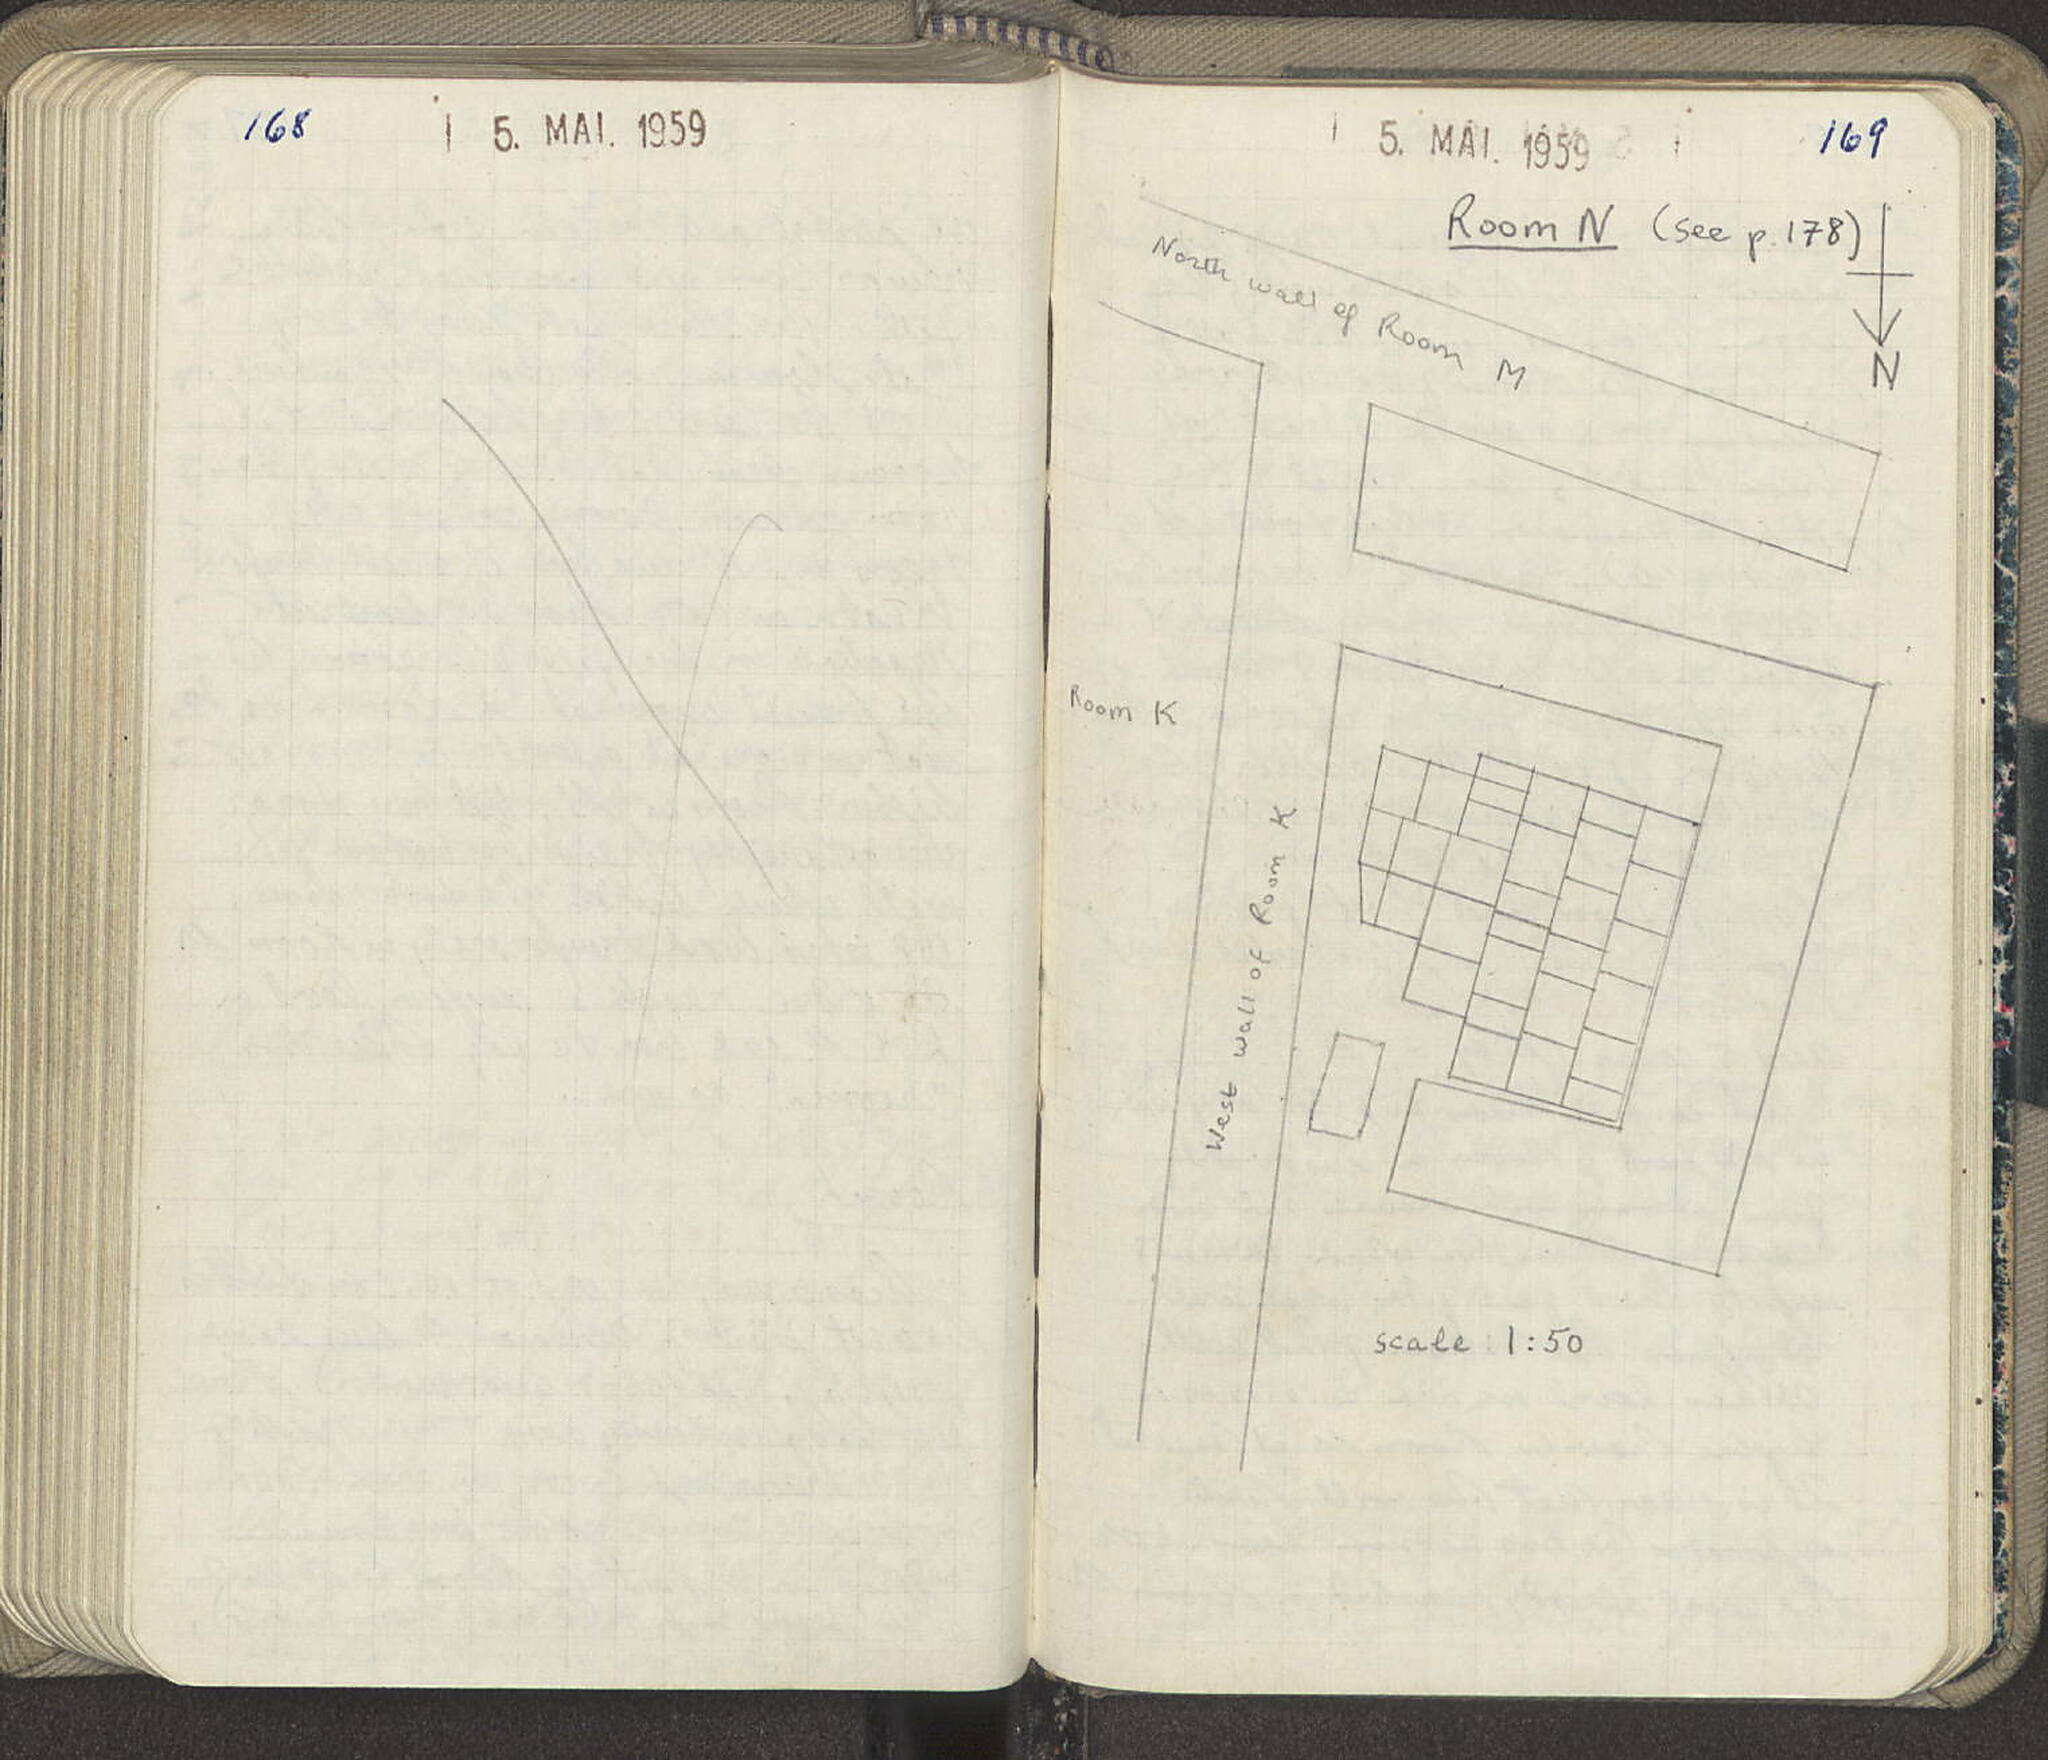 168
5. MAI. 1959
5. MAI. 1959
169
Room N (see p. 178)
N
North wall of Room M
Room K
West wall of Room K
scale 1:50